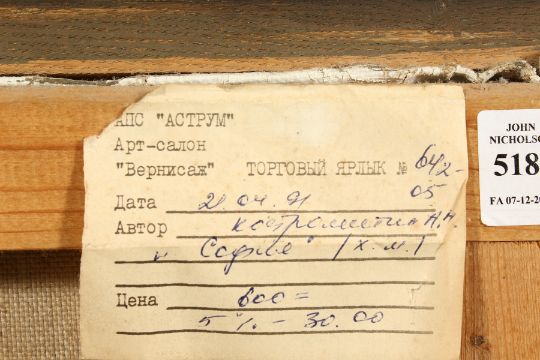 АПС "АСТРУМ"
Арт-салон
"Вернисаж" ТОРГОВЫЙ ЯРЛЫК № 642-
05
Дата 21.04.91
Автор Костромитин А.Н.
"София" (х.м.)
Цена 600=
5%-30.00
JOHN
NICHOLSO
518
FA 07-12-20